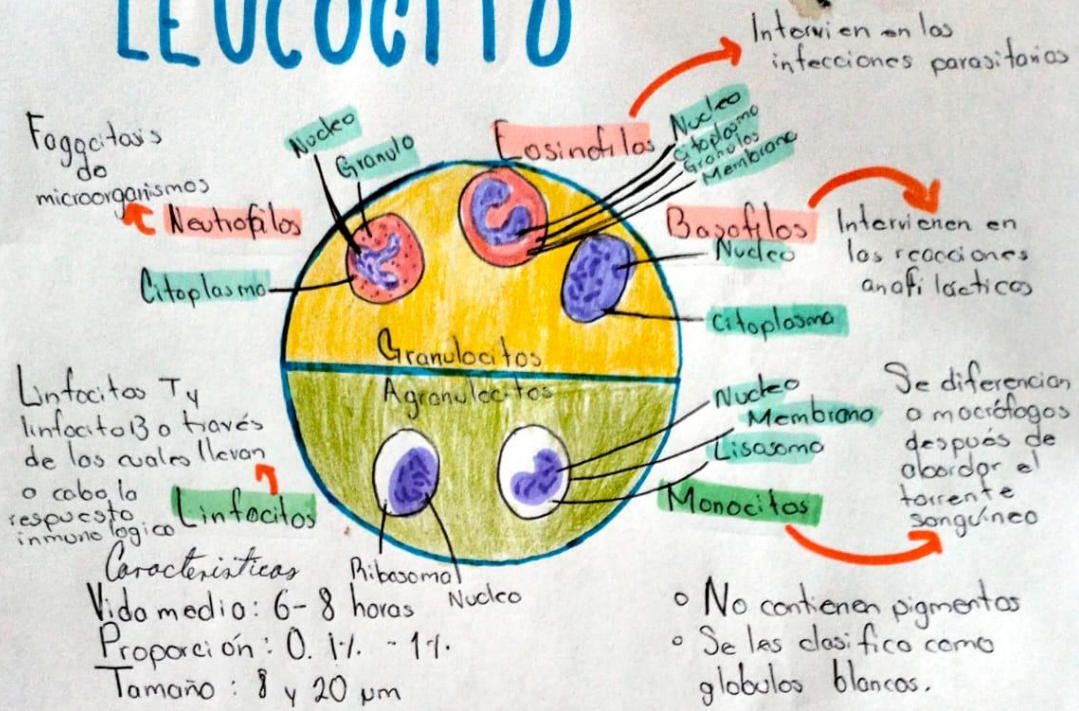 LEUCOCITO
Intervien en las
infecciones parasitarias
Fagocitosis
de
microorganismos
Neutrofilos
Nucleo
Granulo
Citoplasma
Eosinofilos
Nucleo
Citoplasma
Granulos
Membrana
Basofilos
Nucleo
Citoplasma
Intervienen en
las reacciones
anafilacticas
Granulocitos
Agranulocitos
Linfocitos T y
linfocito B a través
de los cuales llevan
a cabo la
respuesta
inmunologica
Linfocitos
Ribosoma
Nucleo
Nucleo
Membrana
Lisosoma
Monocitos
Se diferencian
a macrófagos
después de
abordar el
torrente
sanguíneo
Caracteristicas
Vida media: 6-8 horas
Proporción: 0.1% - 1%.
Tamaño: 8 y 20 µm
No contienen pigmentos
Se les clasifica como
globulos blancos.